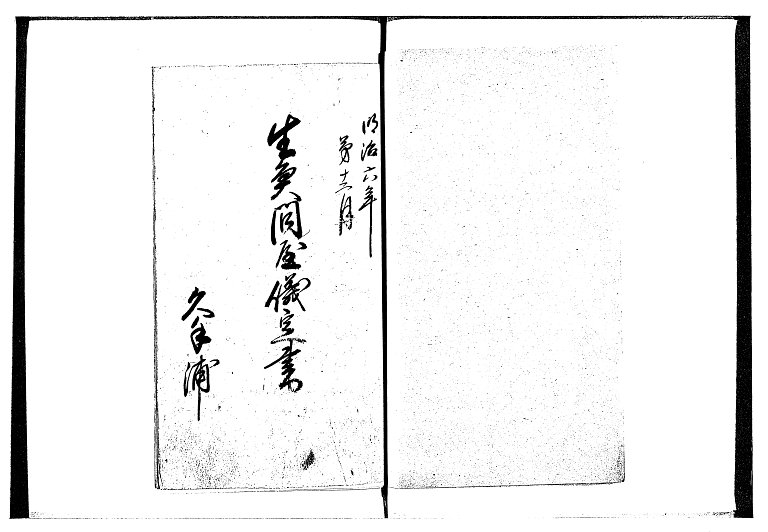 明治六年
第十二月
生魚問屋儀定書
久手浦